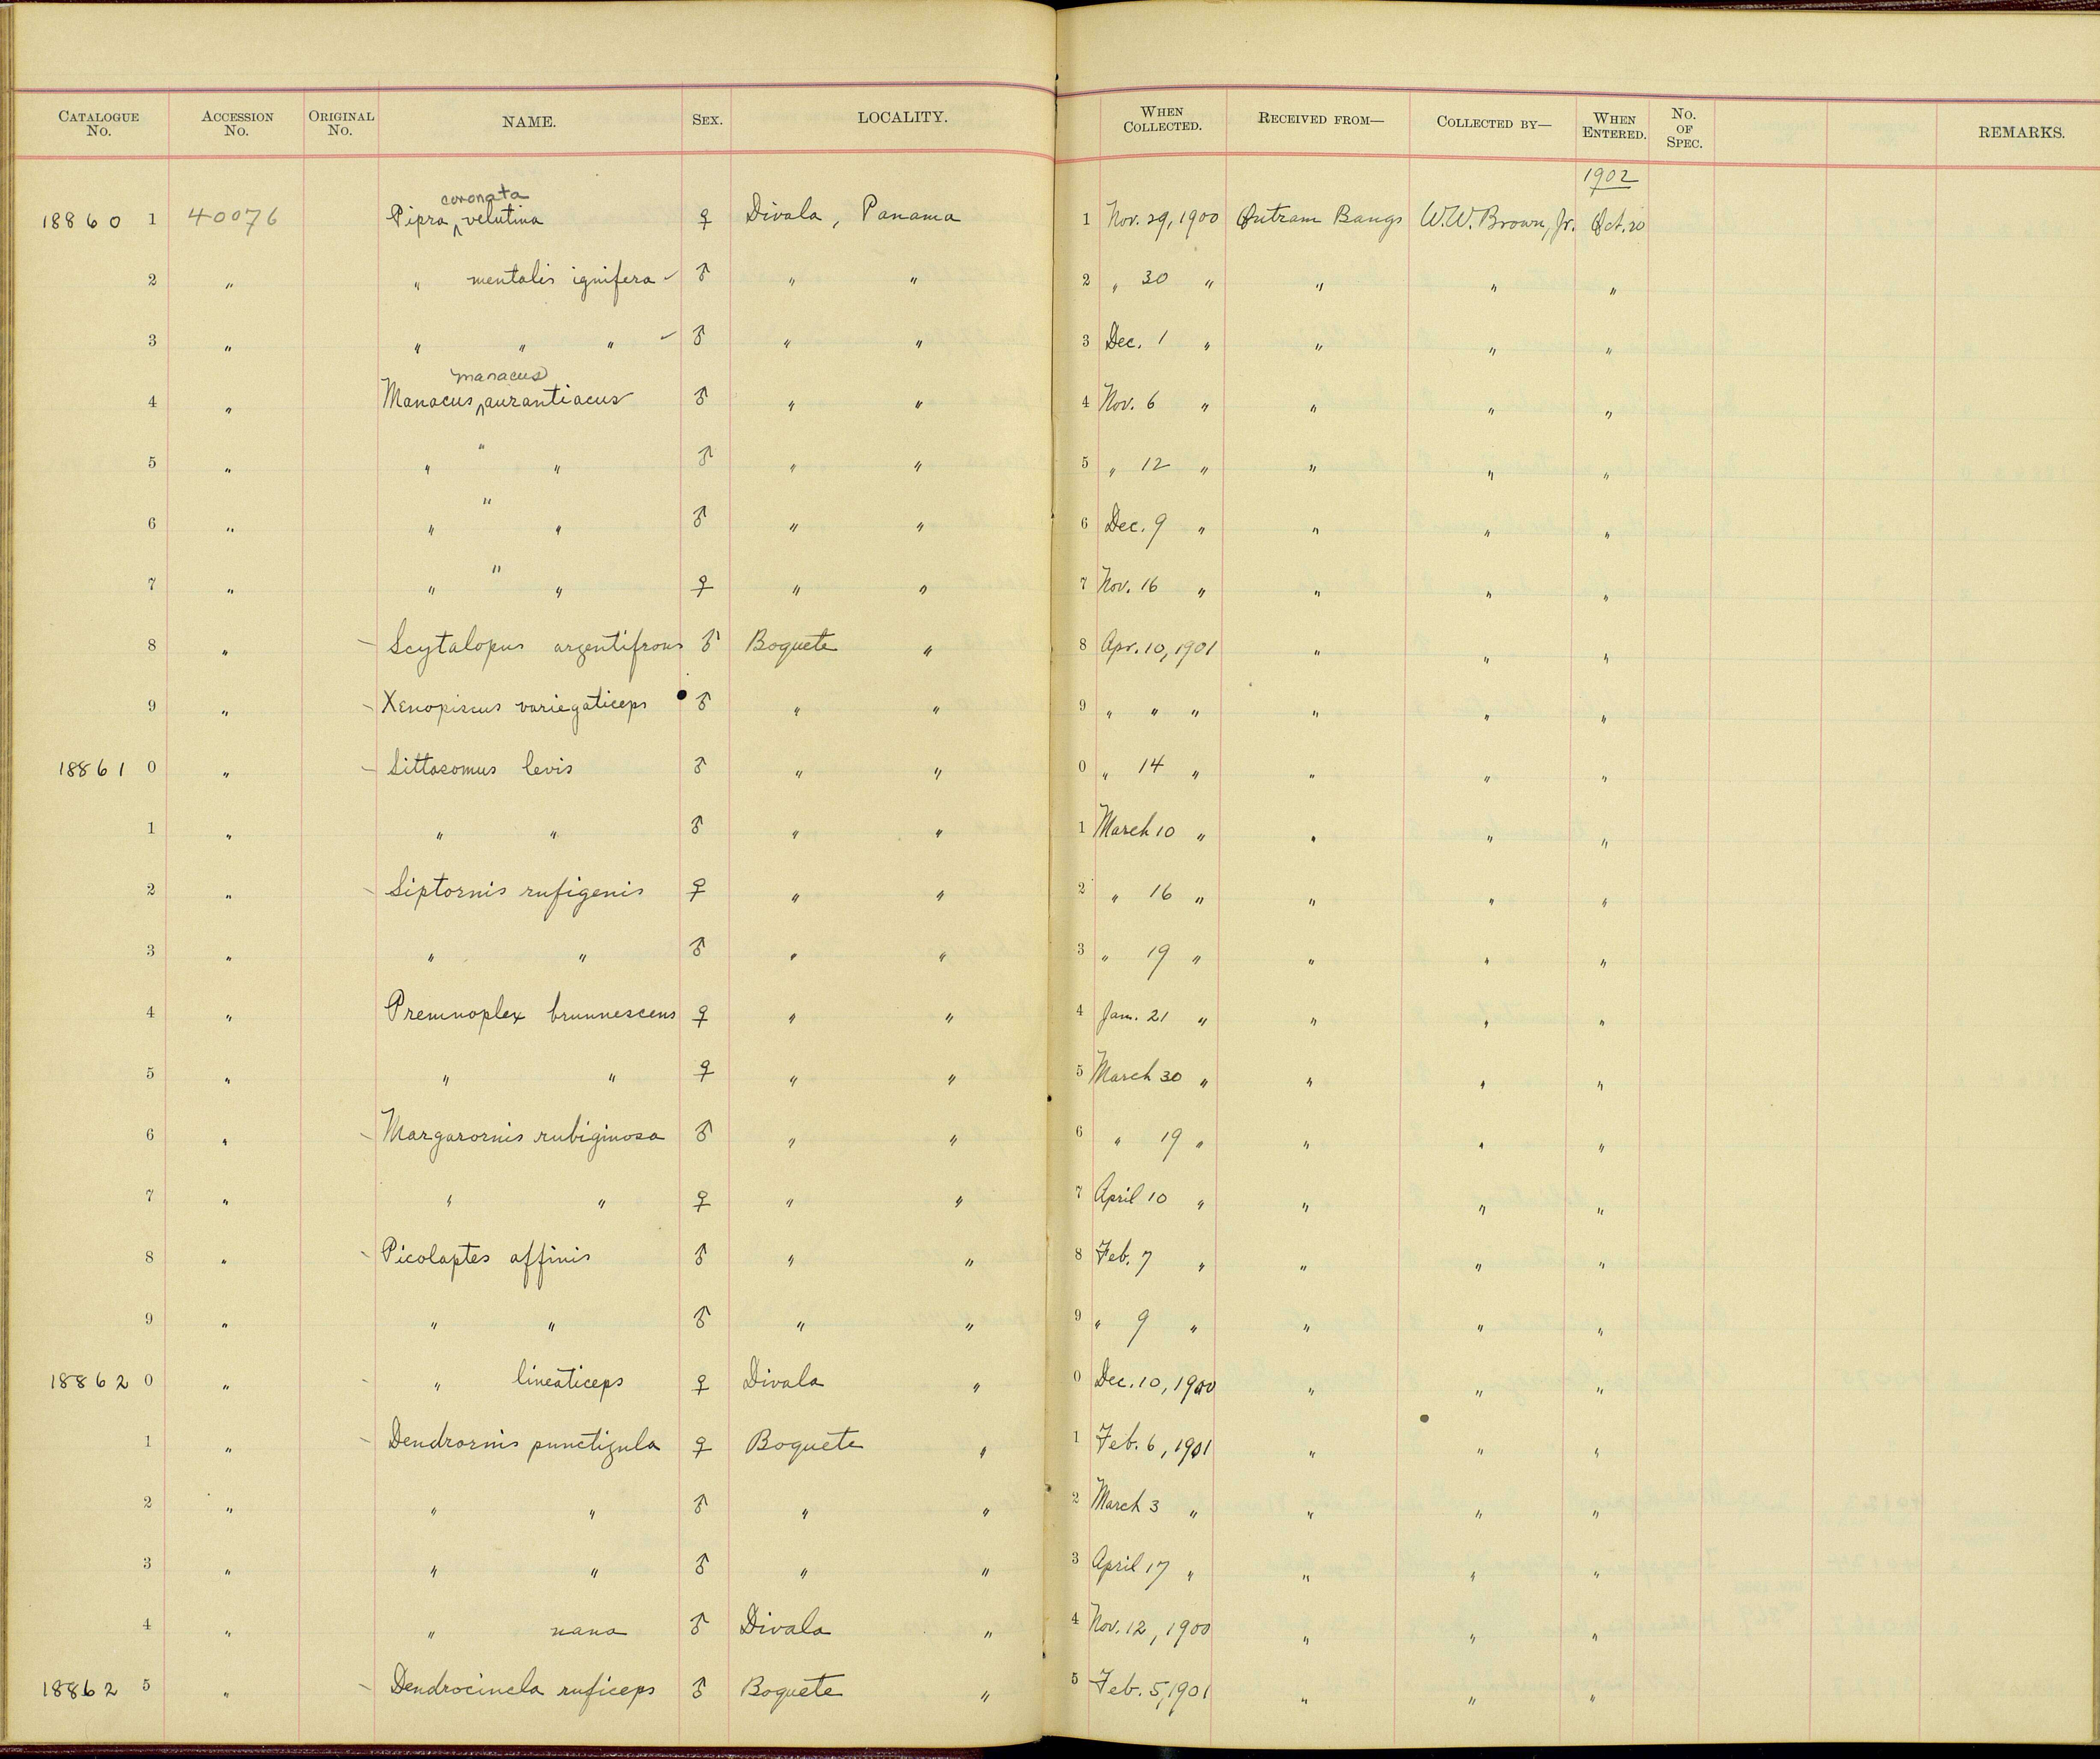 CATALOGUE No. ACCESSION No. ORIGINAL No. NAME. SEX. LOCALITY. WHEN COLLECTED. RECEIVED FROM— COLLECTED BY— WHEN ENTERED. No. OF SPEC. REMARKS.
1902
coronata
18860 1 40076 Pipra ‸ velutina ♀ Divala, Panama 1 Nov. 29, 1900 Outram Bangs W.W. Brown, Jr. Oct. 20
2 " " mentalis ignifera ✓ ♂ " " 2 " 30 " " " "
3 " " " " ✓ ♂ " " 3 Dec. 1 " " " "
manacus
4 " Manacus ‸ aurantiacus ♂ " " 4 Nov. 6 " " " "
5 " " " " ♂ " " 5 " 12 " " " "
6 " " " " ♂ " " 6 Dec. 9 " " " "
7 " " " " ♀ " " 7 Nov. 16 " " " "
8 " – Scytalopus argentifrons ♂ Boquete " 8 Apr. 10, 1901 " " "
9 " – Xenopiscus variegaticeps ♂ " " 9 " " " " " "
18861 0 " – Sittasomus levis ♂ " " 0 " 14 " " " "
1 " " " ♂ " " 1 March 10 " " " "
2 " – Siptornis rufigenis ♀ " " 2 " 16 " " " "
3 " " " ♂ " " 3 " 19 " " " "
4 " Premnoplex brunnescens ♀ " " 4 Jan. 21 " " " "
5 " " " ♀ " " 5 March 30 " " " "
6 " – Margarornis rubiginosa ♂ " " 6 " 19 " " " "
7 " " " ♀ " " 7 April 10 " " " "
8 " – Picolaptes affinis ♂ " " 8 Feb. 7 " " " "
9 " " " ♂ " " 9 " 9 " " " "
18862 0 " – " lineaticeps ♀ Divala " 0 Dec. 10, 1900 " " "
1 " – Dendrornis punctigula ♀ Boquete " 1 Feb. 6, 1901 " " "
2 " " " ♂ " " 2 March 3 " " " "
3 " " " ♂ " " 3 April 17 " " " "
4 " " nana ♂ Divala " 4 Nov. 12, 1900 " " "
18862 5 " – Dendrocincla ruficeps ♂ Boquete " 5 Feb. 5, 1901 " " "